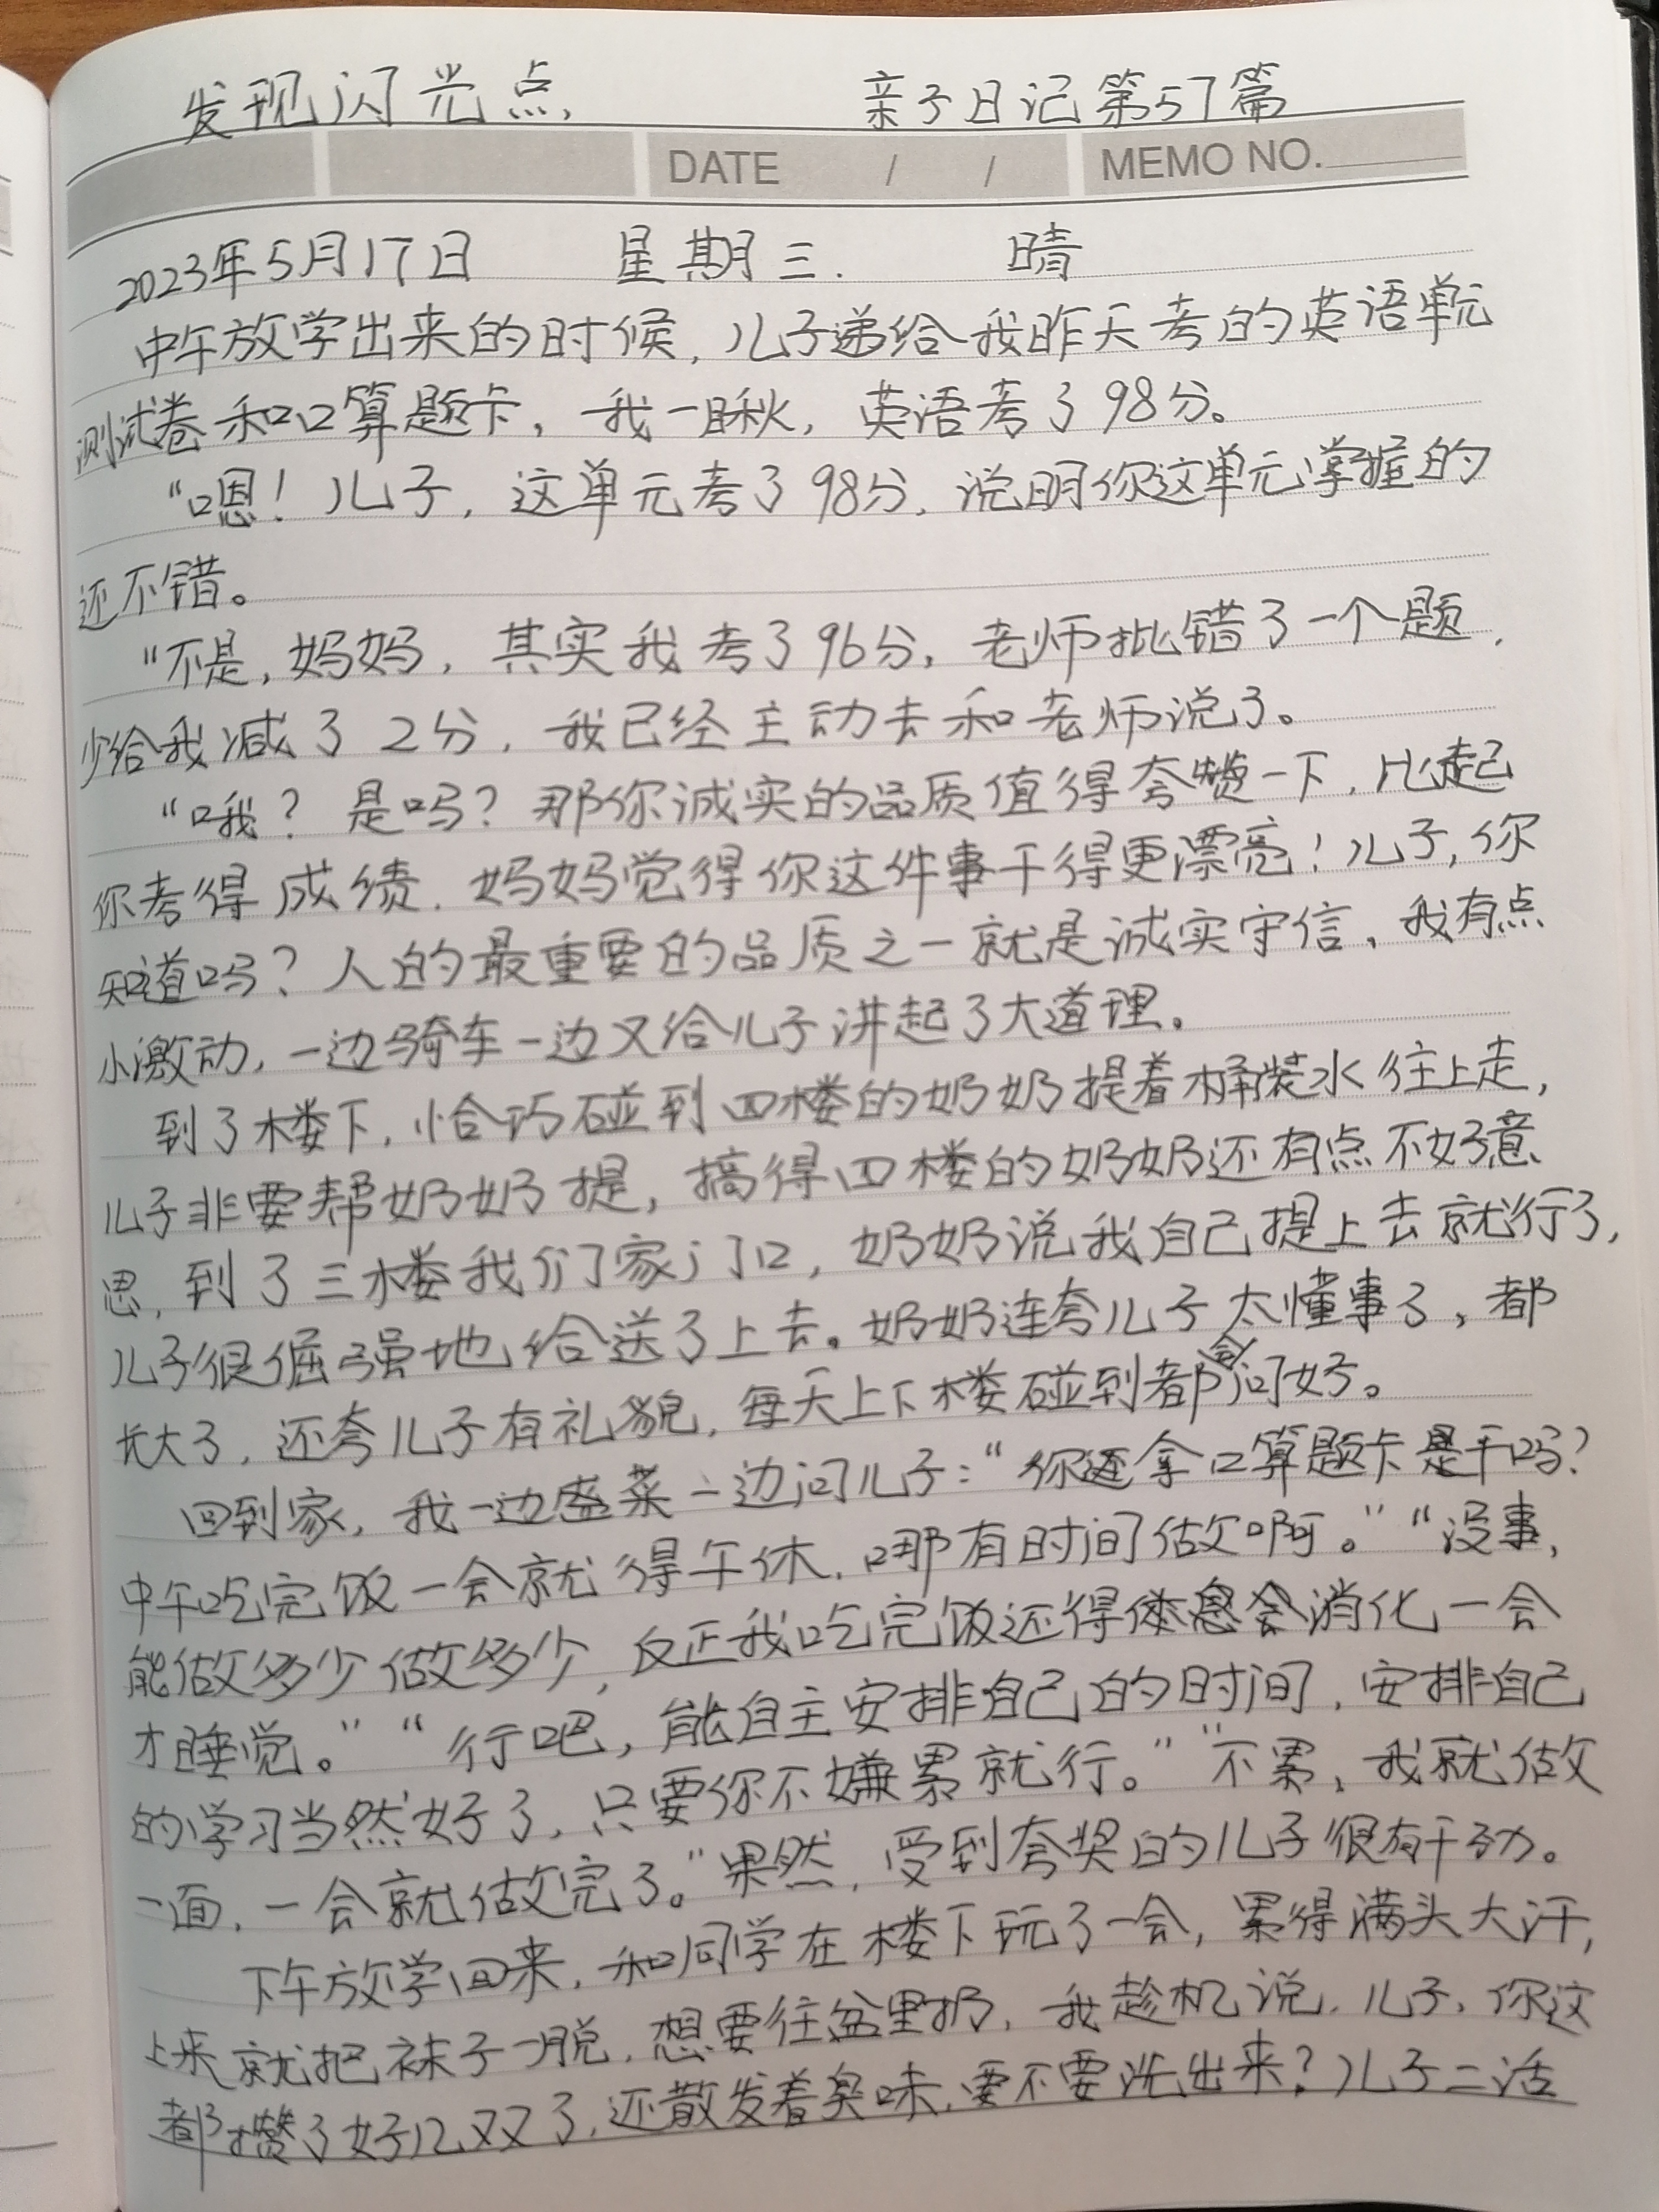 发现闪光点 亲子日记第57篇
DATE / / MEMO NO.
2023年5月17日 星期三. 晴
中午放学出来的时候,儿子递给我昨天考的英语单元
测试卷和口算题卡,我一瞅,英语考了98分。
“嗯!儿子,这单元考了98分,说明你这单元掌握的
还不错。
“不是,妈妈,其实我考了96分,老师批错了一个题,
少给我减了2分,我已经主动去和老师说了。
“哦?是吗?那你诚实的品质值得夸赞一下,比起
你考得成绩,妈妈觉得你这件事干得更漂亮!儿子,你
知道吗?人的最重要的品质之一就是诚实守信,我有点
小激动,一边骑车一边又给儿子讲起了大道理。
到了楼下,恰巧碰到四楼的奶奶提着桶装水往上走,
儿子非要帮奶奶提,搞得四楼的奶奶还有点不好意
思,到了三楼我们家门口,奶奶说我自己提上去就行了,
儿子很倔强地给送了上去。奶奶连夸儿子太懂事了,都
长大了,还夸儿子有礼貌,每天上下楼碰到都会问好。
回到家,我一边盛菜一边问儿子:“你还拿口算题卡是干吗?
中午吃完饭一会就得午休,哪有时间做啊。”“没事,
能做多少做多少,反正我吃完饭还得休息会消化一会
才睡觉。”“行吧,能自主安排自己的时间,安排自己
的学习当然好了,只要你不嫌累就行。”“不累,我就做
一面,一会就做完了。”果然,受到夸奖的儿子很有干劲。
下午放学回来,和同学在楼下玩了一会,累得满头大汗,
上来就把袜子一脱,想要往盆里扔,我趁机说,儿子,你这
都攒了好几双了,还散发着臭味,要不要洗出来?儿子二话